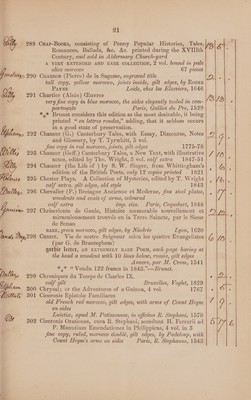 21
289 Chap-Books, consisting of Penny Popular Histories, Tales,
Romances, Ballads, &c. &c. printed during the XVIIIth
Century, and sold in Aldermary Church-yard
A VERY EXTENSIVE AND RARE COLLECTION, 2 vol. bound in pale
olive morocco 67 pieces
290 Charron (Pierre) de la Sagesse, engraved title
tall copy, yellow morocco, joints inside, gilt edges, by Roger
Payne Leide, chez les Elseviers, 1646
291 Chartier (Alain) Œuvres
very fine copy in blue morocco, the sides elegantly tooled in com-
partments Paris, Galliot du Pre, 1529
*** Brunet considers this edition as the most desirable, it being
printed “en lettres rondes,” adding, that it seldom occurs
in a good state of preservation.
292 Chaucer (G.) Canterbury Tales, with Essay, Discourse, Notes
and Glossary, by T. Tyrwhitt, 5 vol.
fine copy in red morocco, joints, gilt edges 1775-78
293 Chaucer (Geff.) Canterbury Tales, a New Text, with illustrative
notes, edited by Tho. Wright, 3 vol. calf extra 1847-51
294 Chaucer (the Life of) by S. W. Singer, from Whittingham's
edition of the British Poets, only 12 copies printed 1821
295 Chester Plays. A Collection of Mysteries, edited by T. Wright
calf extra, gilt edges, old style 1843
296 Chevalier (P.) Bretagne Ancienne et Moderne, fine steel plates,
woodcuts and coats of arms, coloured
calf extra imp. 8vo. Paris, Coquebert, 1844
297 Christineus de Gouda, Histoire memorable nouvellement et
miraculeusement trouvée en la Terre Saincte, par le Sieur
de Sensan
RARE, green morocco, gilt edges, by Niedrée Lyon, 1620
298 Christ. Vie de nostre Seigneur selon les quatre Evangelistes
(par G. de Branteghem)
gothic letter, AN EXTREMELY RARE POEM, each page having at
the head a woodcut with 10 lines below, russia, gilt edges
Anvers, par M. Crom, 1541
*** “Vendu 122 francs in 1843.”—Brunet.
299 Chroniques du Temps de Charles IX.
calf gilt Bruxelles, Voglet, 1829
300 Chrysal; or the Adventures of a Guinea, 4 vol. 1767
301 Ciceronis Epistolæ Familiares
old French red morocco, gilt edges, with arms of Count Hoym
on sides
Lutetiæ, apud M. Patissonum, in officina R. Stephani, 1578
302 Ciceronis Orationes, cura R. Stephani, accedunt H. Ferrarii ad
P. Manutium Emendationes in Philippicas, 4 vol. in 3
fine copy, ruled, morocco double, gilt edges, by Padeloup, with
Count Hoym's arms on sides Paris, R. Stephanus, 1543